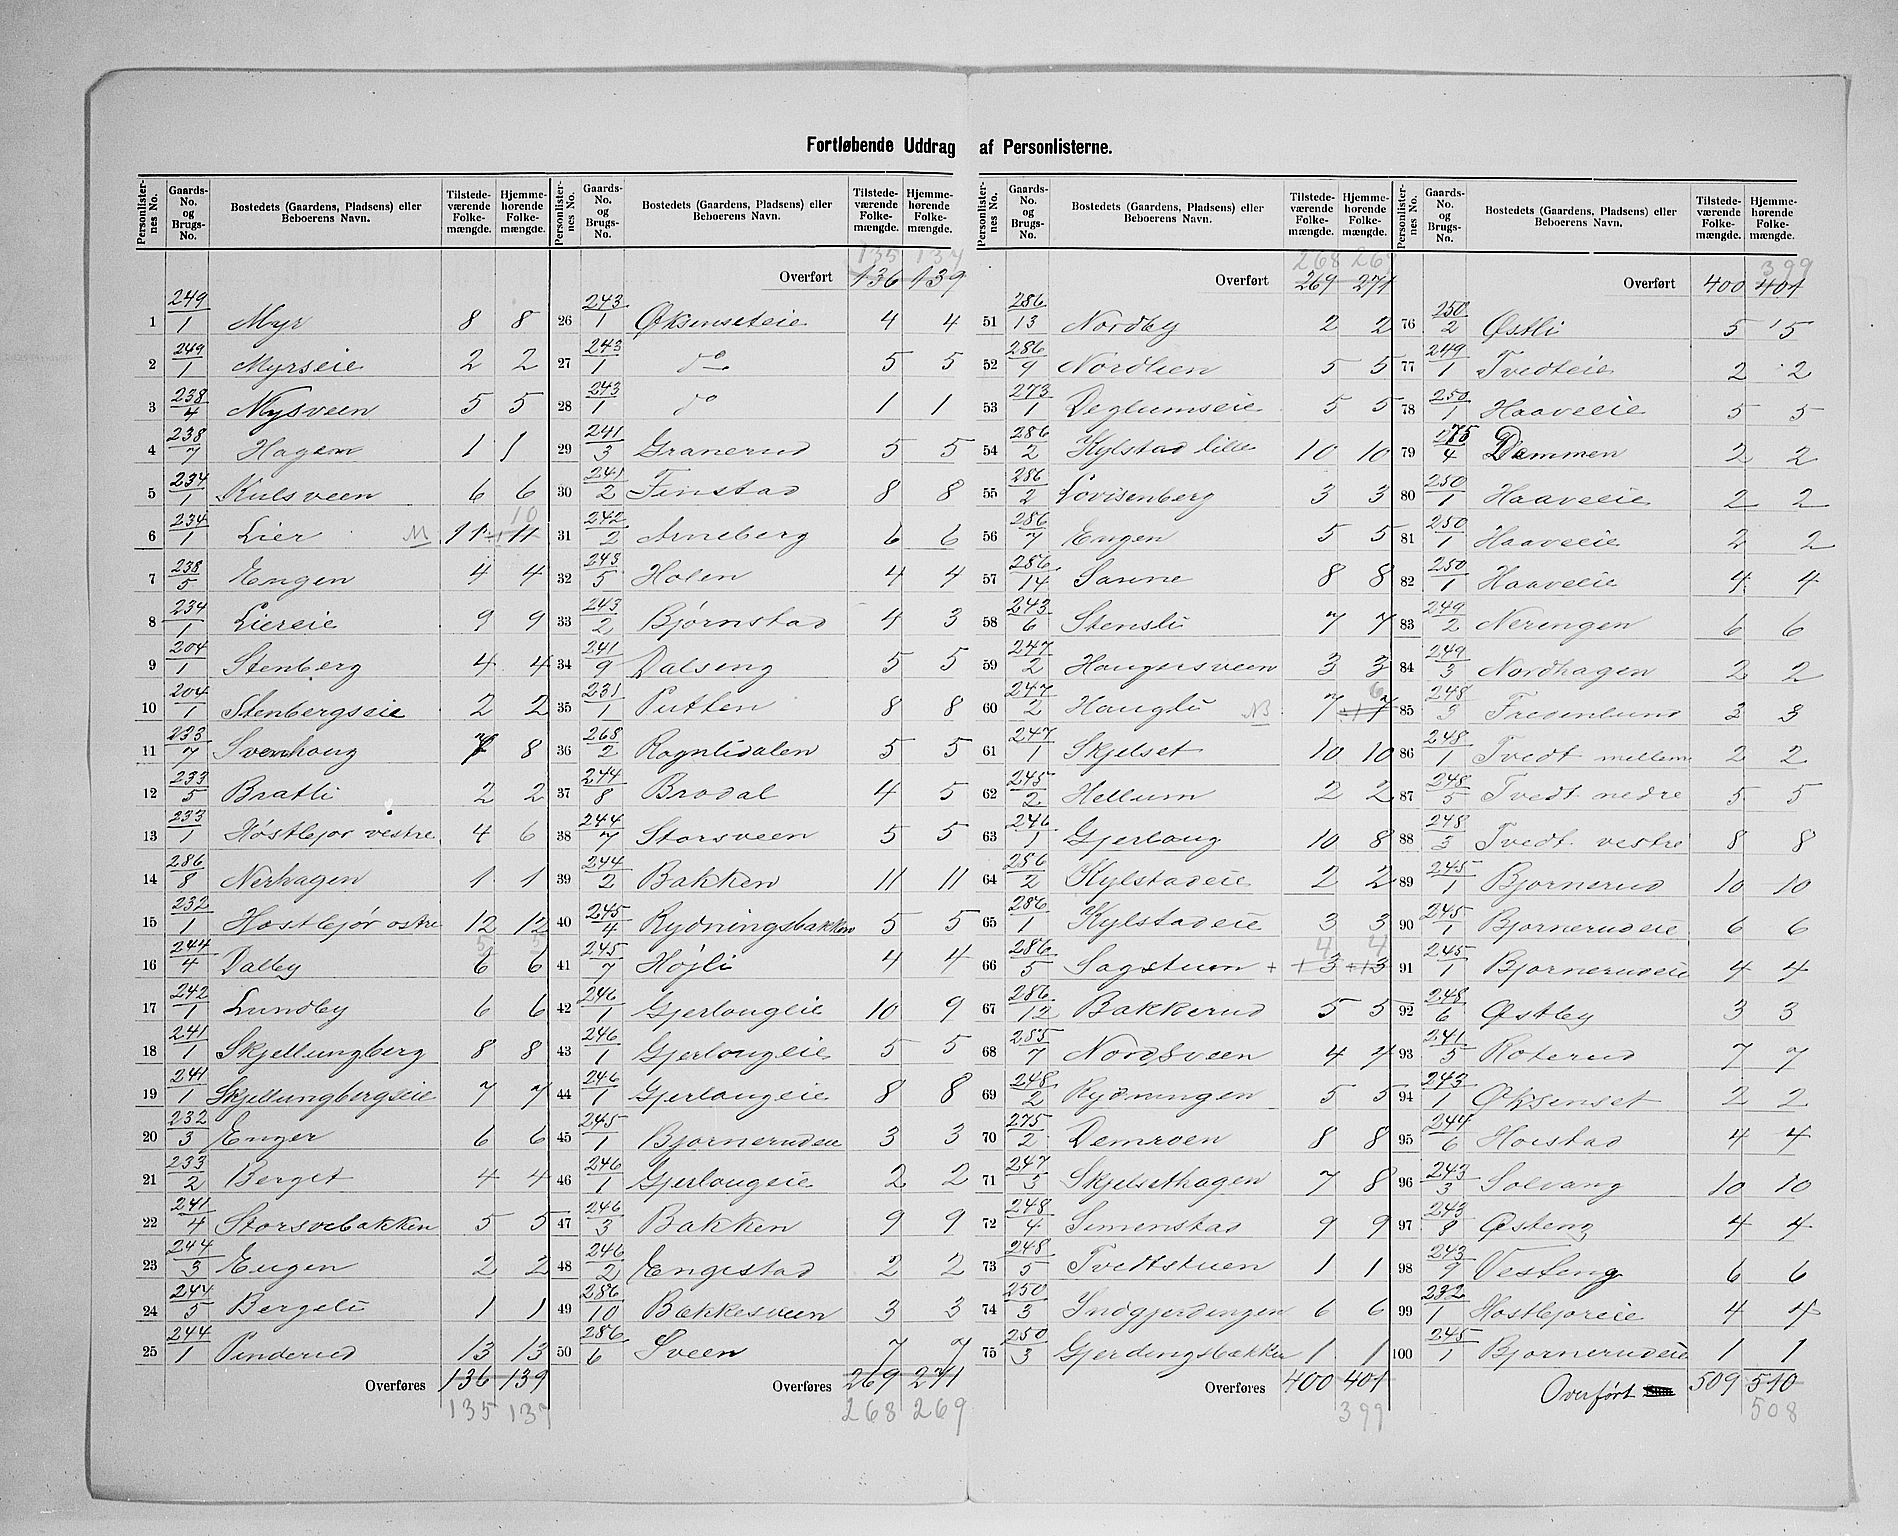 Fortløbende Uddrag af Personlisterne.
Personlisternes No. Gaards-No. og Brugs-No. Bostedets (Gaardens, Pladsens) eller Beboerens Navn. Tilstedeværende Folkemængde. Hjemmehørende Folkemængde.
1 249/1 Myr 8 8
2 249/1 Myrseie 2 2
3 238/4 Nysveen 5 5
4 238/7 Hagen 1 1
5 234/1 Kulsveen 6 6
6 234/1 Lier M 11 11 10
7 238/5 Engen 4 4
8 234/1 Liereie 9 9
9 204/1 Stenberg 4 4
10 204/1 Stenbergseie 2 2
11 233/7 Svenhaug 7 8
12 233/5 Bratli 2 2
13 233/1 Høstbjør vestre 4 6
14 286/8 Nerhagen 1 1
15 232/1 Høstbjør østre 12 12
16 244/4 Dalby 6 6 5 5
17 242/1 Lundby 6 6
18 241/1 Skjellungberg 8 8
19 241/1 Skjellungbergseie 7 7
20 232/3 Enger 6 6
21 233/2 Berget 4 4
22 241/4 Storsvebakken 5 5
23 244/3 Engen 2 2
24 244/5 Bergeli 1 1
25 244/1 Pinderud 13 13
Overføres 136 139
135 137
Personlisternes No. Gaards-No. og Brugs-No. Bostedets (Gaardens, Pladsens) eller Beboerens Navn. Tilstedeværende Folkemængde. Hjemmehørende Folkemængde.
135 137
Overført 136 139
26 243/1 Øksenseteie 4 4
27 243/1 do 5 5
28 243/1 do 1 1
29 241/3 Granerud 5 5
30 241/2 Finstad 8 8
31 242/2 Arneberg 6 6
32 243/5 Holen 4 4
33 243/2 Bjørnstad 4 3
34 241/9 Dalseng 5 5
35 231/1 Putten 8 8
36 268/2 Rognlidalen 5 5
37 244/8 Brodal 4 5
38 244/7 Storsveen 5 5
39 244/2 Bakken 11 11
40 245/4 Rydningsbakken 5 5
41 245/7 Højli 4 4
42 246/1 Gjerlaugeie 10 9
43 246/1 Gjerlaugeie 5 5
44 246/1 Gjerlaugeie 8 8
45 245/1 Bjørnerudeie 3 3
46 246/1 Gjerlaugeie 2 2
47 246/3 Bakken 9 9
48 246/2 Engestad 2 2
49 286/10 Bækkesveen 3 3
50 286/6 Sveen 7 7
Overføres 269 271
268 269
Personlisternes No. Gaards-No. og Brugs-No. Bostedets (Gaardens, Pladsens) eller Beboerens Navn. Tilstedeværende Folkemængde. Hjemmehørende Folkemængde.
268 269
Overført 269 271
51 286/13 Nordby 2 2
52 286/9 Nordlien 5 5
53 273/1 Deglumseie 5 5
54 286/2 Kylstad lille 10 10
55 286/2 Lovisenberg 3 3
56 286/7 Engen 5 5
57 286/14 Sanne 8 8
58 243/6 Stensli 7 7
59 247/2 Haugersveen 3 3
60 247/2 Haugli NB 7 7 6
61 247/1 Skjelset 10 10
62 245/2 Hellum 2 2
63 246/1 Gjerlaug 10 8
64 286/2 Kylstadeie 2 2
65 286/1 Kylstadeie 3 3
66 286/5 Sagstuen + 3 3 4 4
67 286/12 Bakkerud 5 5
68 285/7 Nordsveen 4 4
69 248/2 Rydningen 5 5
70 275/2 Demroen 8 8
71 247/3 Skjelsethagen 7 8
72 248/4 Simenstad 9 9
73 248/5 Tvedtstuen 1 1
74 250/3 Indgjerdingen 6 6
75 250/3 Gjerdingsbækken 1 1
Overføres 400 401
399
Personlisternes No. Gaards-No. og Brugs-No. Bostedets (Gaardens, Pladsens) eller Beboerens Navn. Tilstedeværende Folkemængde. Hjemmehørende Folkemængde.
399
Overført 400 401
76 250/2 Østli 5 5
77 249/1 Tvedteie 2 2
78 250/1 Haaveeie 5 5
79 275/4 Dammen 2 2
80 250/1 Haaveeie 2 2
81 250/1 Haaveeie 2 2
82 250/1 Haaveeie 4 4
83 249/2 Neringen 6 6
84 249/3 Nordhagen 2 2
85 248/3 Fredenlund 3 3
86 248/1 Tvedt mellem 2 2
87 248/5 Tvedt nedre 5 5
88 248/3 Tvedt vestre 8 8
89 245/1 Bjørnerud 10 10
90 245/1 Bjørnerudeie 6 6
91 245/1 Bjørnerudeie 4 4
92 248/6 Østby 3 3
93 241/5 Roterud 7 7
94 243/1 Øksenset 2 2
95 244/6 Hoistad 4 4
96 243/3 Solvang 10 10
97 243/8 Østeng 4 4
98 243/9 Vesteng 6 6
99 232/1 Høstbjøreie 4 4
100 245/1 Bjørnerudeie 1 1
Overført 509 510
508